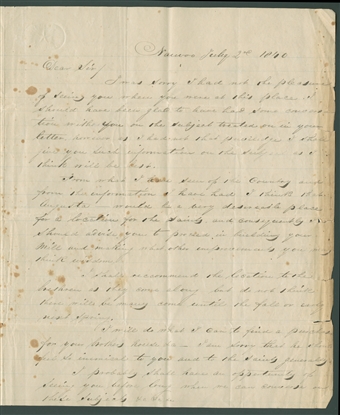 Nauvoo July 2nd 1840
Dear Sir
I was sorry I had not the pleasure
of seeing you when you were at this place. I
should have been glad to have had some conversa
tion with you on the subject treated on in your
letter
you such information on the subject as I
think will be
From what I have seen of the Country and
from the information I have had I think that
Augusta would be a very desirable place
for a location for the Saints and consequently
should advise you to proceed in building your
Mill and making what other improvements you may
think
I shall recommend the location to the
brethren as they come along but do not think
there will be many come until the fall or early
next Spring.
I will do what I can to find a purchaser
for your I am sorry that he should
be so to you and to the Saints
I probably shall have an opportunity of
seeing you before long when we can converse on
these subjects